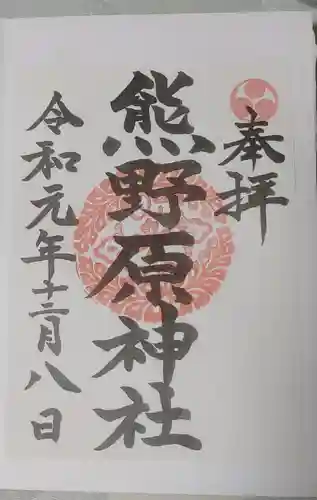 奉拝
熊野原神社
令和元年十二月八日